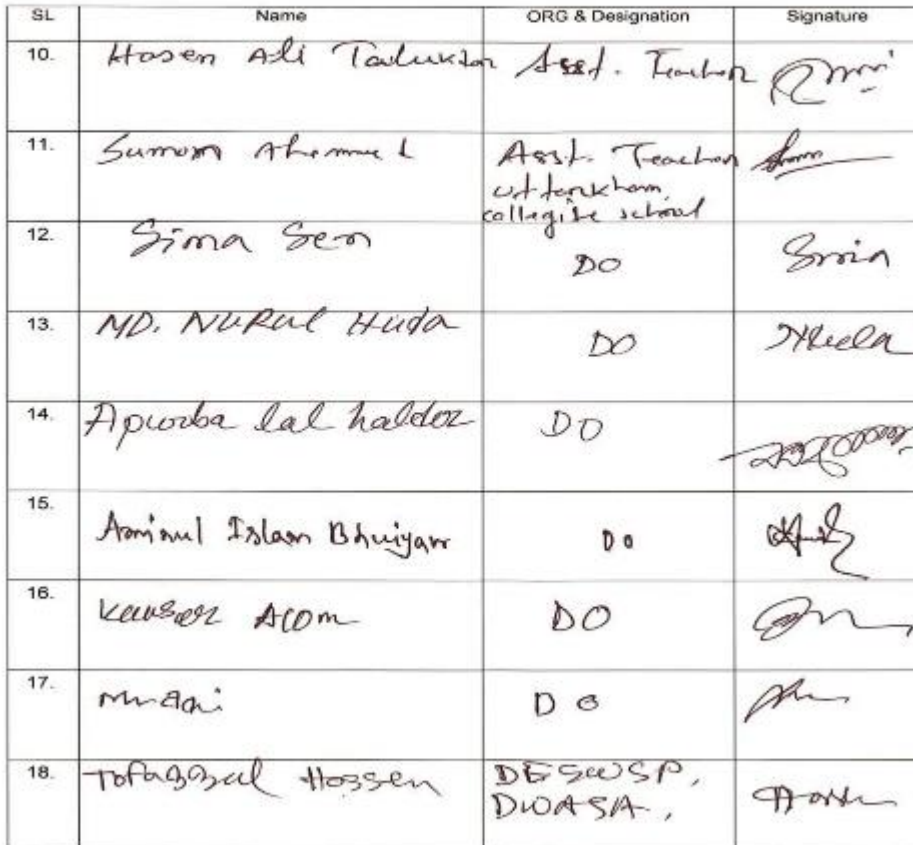 SL Name ORG & Designation Signature
10. Hasen Ali Talukdar Asst. Teacher
11. Sumon Ahemmed Asst. Teacher
uttarkham
collegite school
12. Sima Sen DO Sima
13. MD. NURUL Huda DO NHuda
14. Apurba lal halder DO
15. Aminul Islam Bhuiyan Do
16. Kausar Alom DO
17. DO
18. Tofazzal Hossen DESWSP,
DWASA,